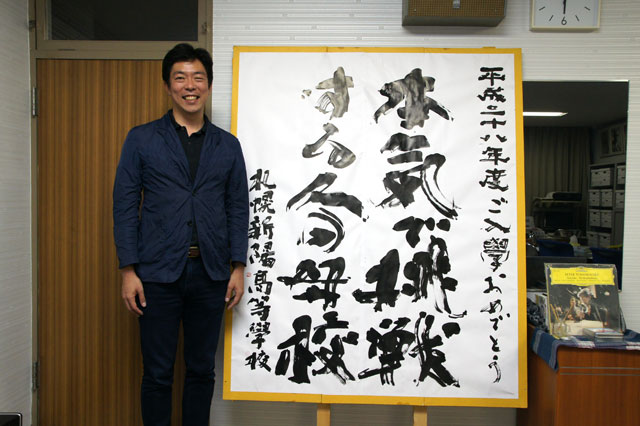 平成二十八年度ご入學おめでとう
本気で挑戦
する人の母校
札幌新陽高等學校